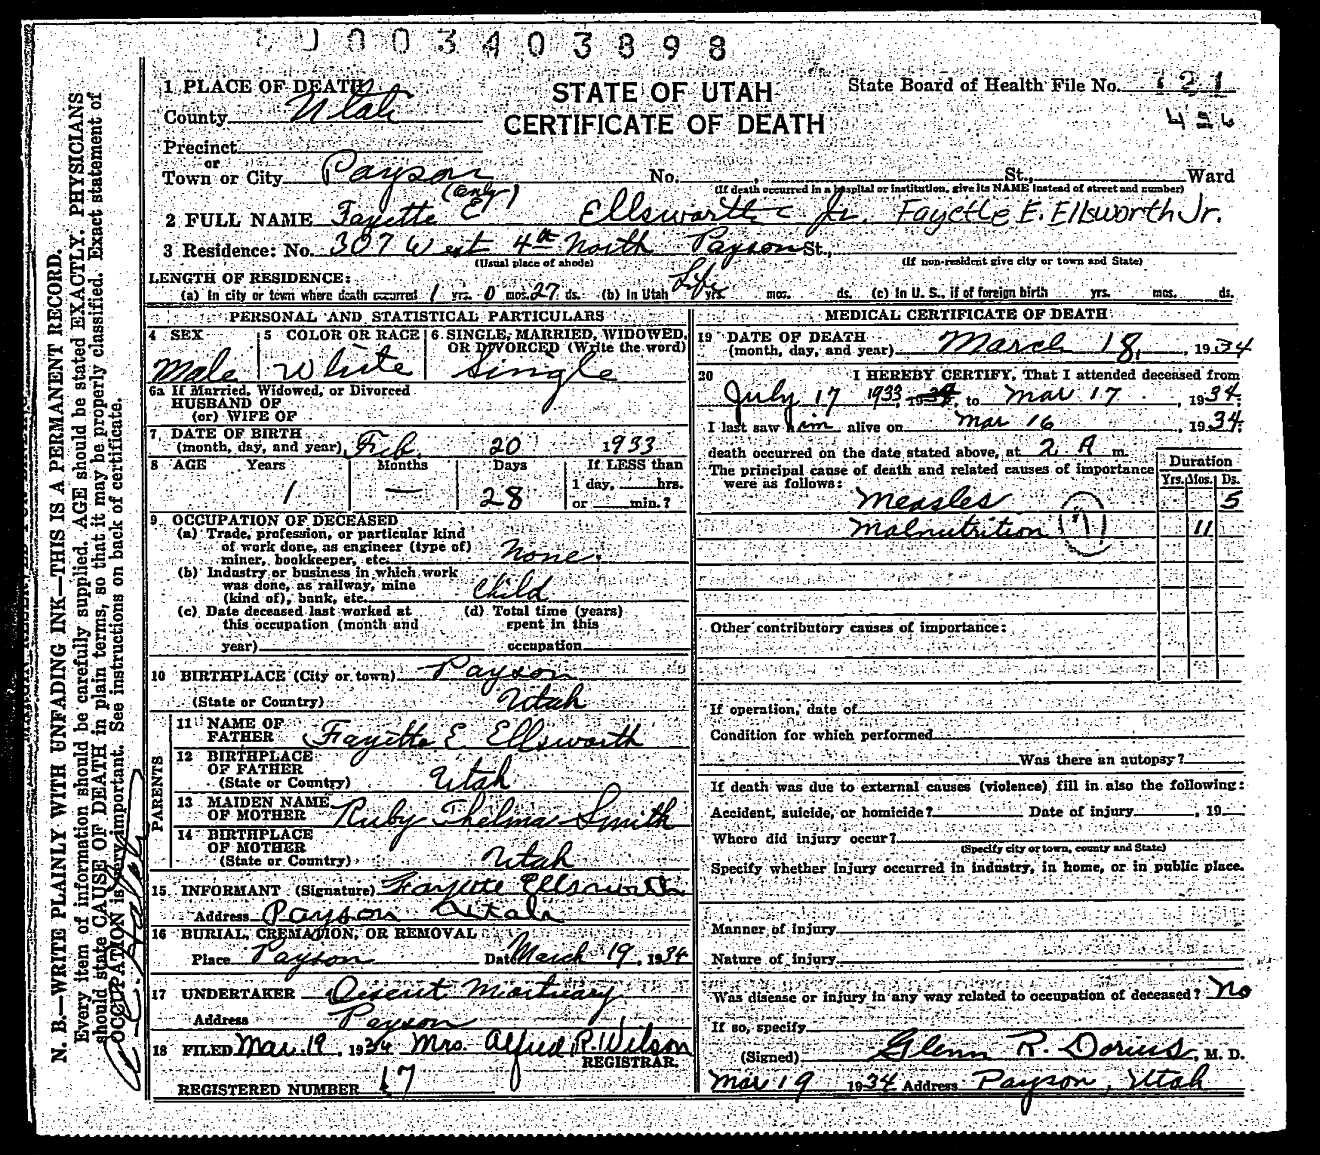 0003403898
1 PLACE OF DEATH
County Utah
Precinct
or
Town or City Payson No. , St., Ward
(If death occurred in a hospital or institution, give its NAME instead of street and number)
STATE OF UTAH
CERTIFICATE OF DEATH
State Board of Health File No. 121
(only)
2 FULL NAME Fayette E. Ellsworth Jr. Fayette E. Ellsworth Jr.
3 Residence: No. 307 West 4th North Payson St.,
(Usual place of abode) (If non-resident give city or town and State)
LENGTH OF RESIDENCE:
(a) In city or town where death occurred 1 yrs. 0 mos. 27 ds. (b) In Utah Life yrs. mos. ds. (c) In U. S., if of foreign birth yrs. mos. ds.
PERSONAL AND STATISTICAL PARTICULARS
4 SEX Male
5 COLOR OR RACE White
6 SINGLE, MARRIED, WIDOWED, OR DIVORCED (Write the word) Single
6a If Married, Widowed, or Divorced
HUSBAND OF
(or) WIFE OF
7 DATE OF BIRTH
(month, day, and year) Feb. 20 1933
8 AGE Years Months Days If LESS than
1 day, hrs.
1 — 28 or min.?
9 OCCUPATION OF DECEASED
(a) Trade, profession, or particular kind
of work done, as engineer (type of)
miner, bookkeeper, etc. None.
(b) Industry or business in which work
was done, as railway, mine
(kind of), bank, etc. Child
(c) Date deceased last worked at (d) Total time (years)
this occupation (month and spent in this
year) occupation
10 BIRTHPLACE (City or town) Payson
(State or Country) Utah
PARENTS
11 NAME OF
FATHER Fayette E Ellsworth
12 BIRTHPLACE
OF FATHER
(State or Country) Utah
13 MAIDEN NAME
OF MOTHER Ruby Thelma Smith
14 BIRTHPLACE
OF MOTHER
(State or Country) Utah
15 INFORMANT (Signature) Fayette Ellsworth
Address Payson Utah
16 BURIAL, CREMATION, OR REMOVAL
Place Payson Date March 19, 1934
17 UNDERTAKER Deseret Mortuary
Address Payson
18 FILED Mar. 19, 1934 Mrs. Alfred R. Wilson
REGISTRAR.
REGISTERED NUMBER 17
MEDICAL CERTIFICATE OF DEATH
19 DATE OF DEATH
(month, day, and year) March 18, 1934
20 I HEREBY CERTIFY, That I attended deceased from
July 17 1933, 19 , to Mar 17, 1934.
I last saw him alive on Mar 16, 1934.
death occurred on the date stated above, at 2 A m.
The principal cause of death and related causes of importance
were as follows:
Duration
Yrs. Mos. Ds.
Measles 5
Malnutrition (?) 11
Other contributory causes of importance:
If operation, date of
Condition for which performed
Was there an autopsy?
If death was due to external causes (violence) fill in also the following:
Accident, suicide, or homicide? Date of injury , 19
Where did injury occur?
(Specify city or town, county and State)
Specify whether injury occurred in industry, in home, or in public place.
Manner of injury
Nature of injury
Was disease or injury in any way related to occupation of deceased? No
If so, specify
(Signed) Glenn R. Dorius, M. D.
Mar 19 1934 Address Payson, Utah
N. B.—WRITE PLAINLY WITH UNFADING INK—THIS IS A PERMANENT RECORD.
Every item of information should be carefully supplied. AGE should be stated EXACTLY. PHYSICIANS
should state CAUSE OF DEATH in plain terms, so that it may be properly classified. Exact statement of
OCCUPATION is very important. See instructions on back of certificate.